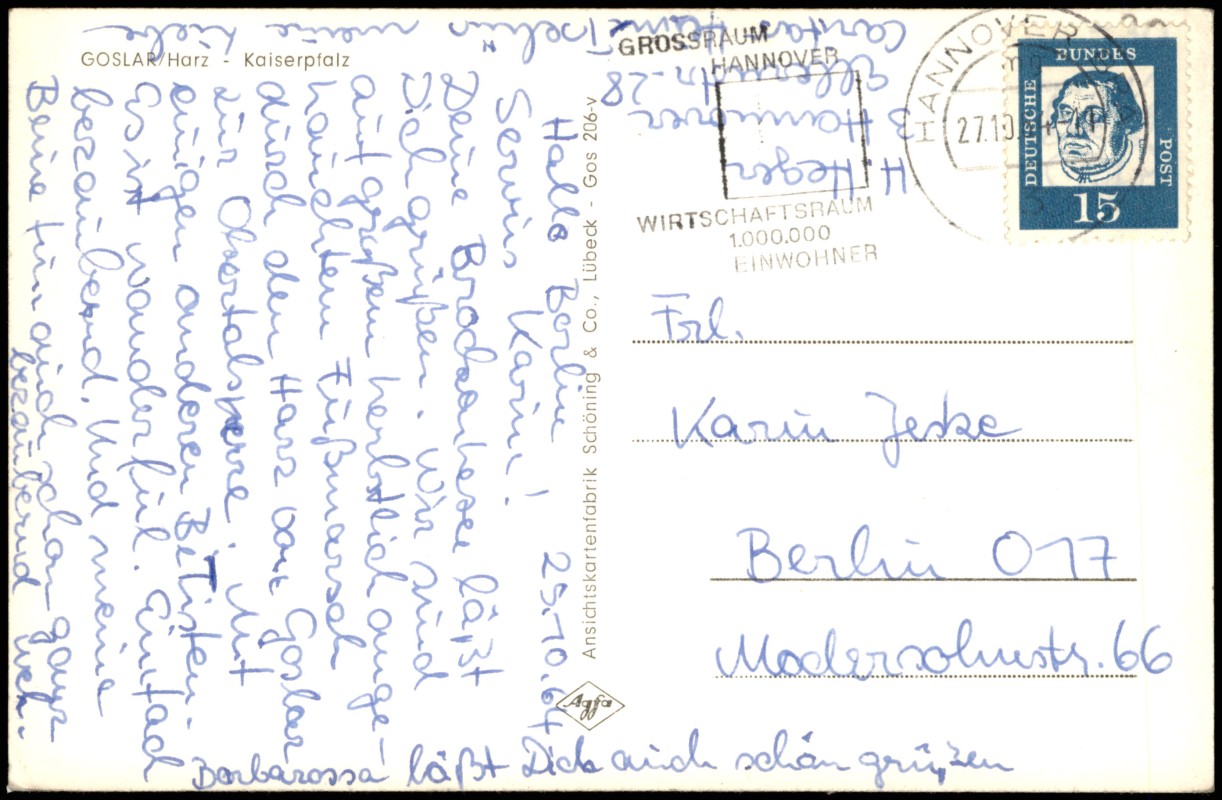 GOSLAR/Harz - Kaiserpfalz
Hallo Berlin 25.10.64
Servus Karin!
Deine Brockenhexe läßt
Dich grüßen. Wir sind
auf großem herbstlich ange-
hauchtem Fußmarsch
durch den Harz von Goslar
zur Okertalsperre. Mit
einigen anderen Be Tisten.
Es ist wanderful. Einfach
bezaubernd. Und meine
Beine tun auch schon ganz
bezaubernd weh.
Barbarossa läßt Dich auch schön grüßen
Tschüs meine Liebe
Ansichtskartenfabrik Schöning & Co., Lübeck - Gos 206-v
Agfa
H. Heger
3 Hannover
Ellernstr. 28
Caritas Heim
GROSSRAUM
HANNOVER
WIRTSCHAFTSRAUM
1.000.000
EINWOHNER
HANNOVER
27.10.
DEUTSCHE
BUNDES
POST
15
Frl.
Karin Jeske
Berlin O 17
Modersohnstr. 66